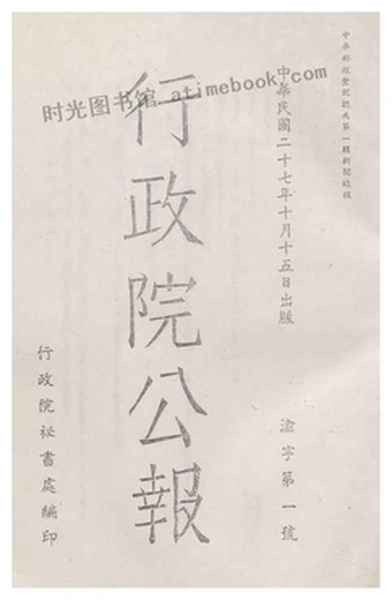 中華郵政登記認為第一類新聞紙類
中華民國二十七年十月十五日出版
渝字第一號
行政院公報
行政院祕書處編印
时光图书馆 atimebook.com